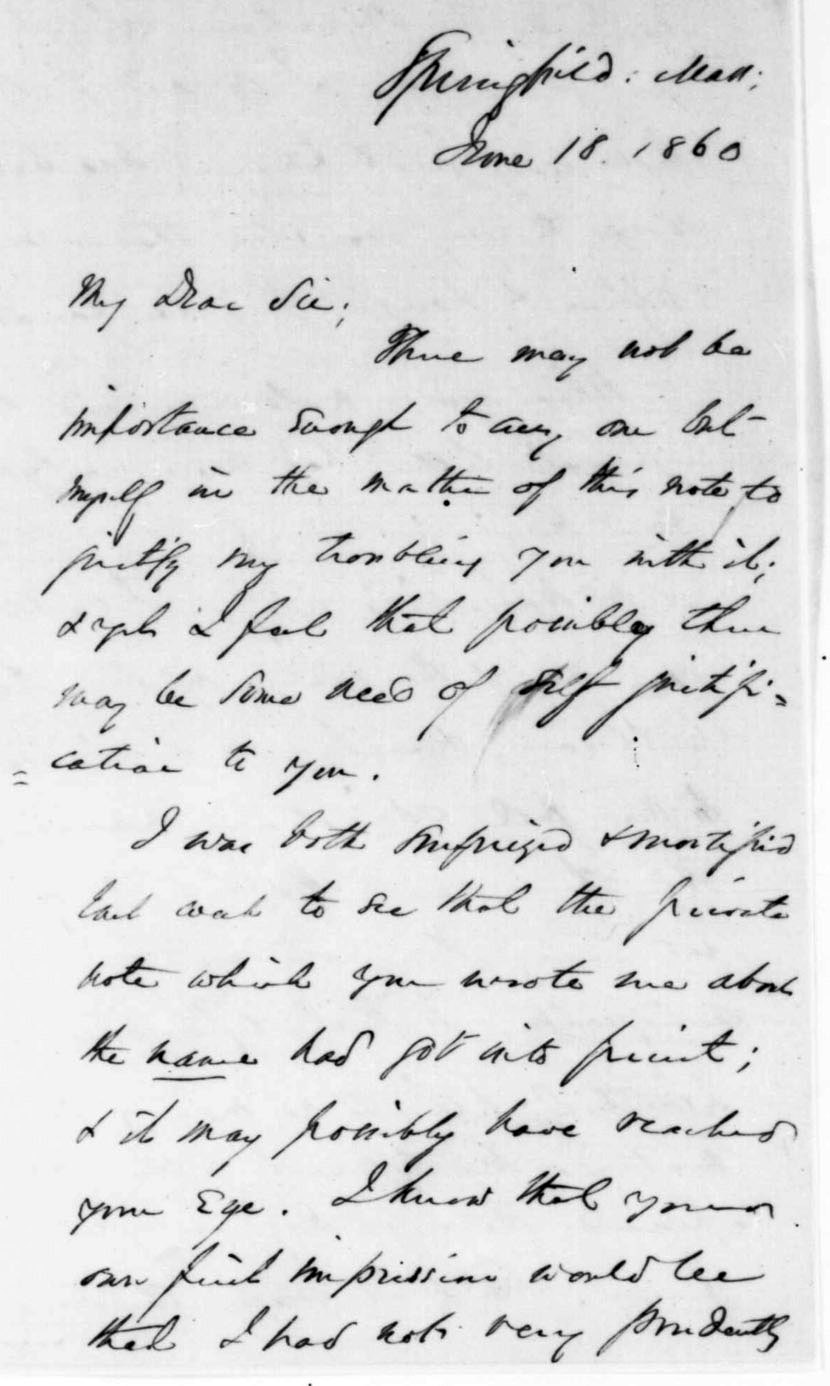 Springfield: Mass:
June 18. 1860
My Dear Sir;
There may not be
importance enough to any one but
myself in the matter of this note to
justify my troubling you with it;
& yet I feel that possibly there
may be some need of self justifi=
=cation to you.
I was both surprized & mortified
last week to see that the private
note which you wrote me about
the name had got into print;
& it may possibly have reached
your Eye. I know that your
own first impression would be
that I had not very prudently